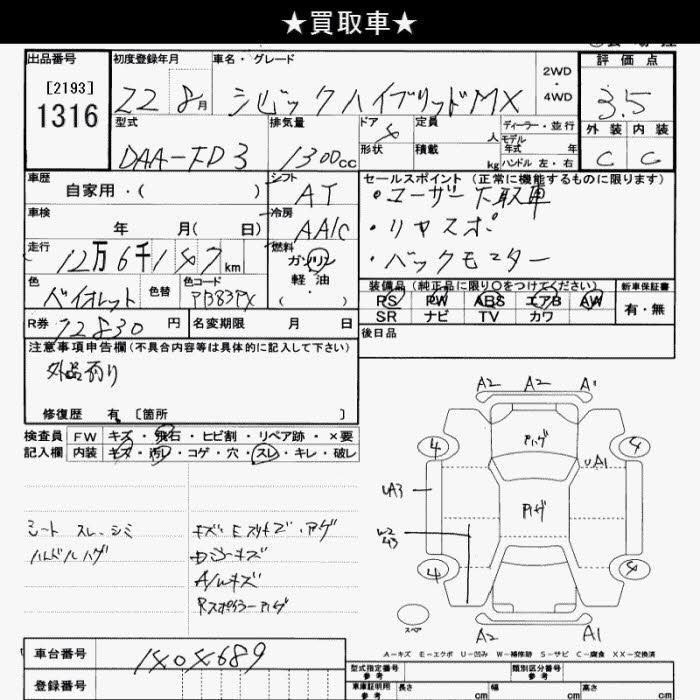 ★買取車★
出品番号 初度登録年月 車名・グレード 2WD・4WD 評価点
[2193]
1316
22 8月 シビックハイブリッドMX 3.5
型式 排気量 ドア 定員 人 ディーラー・並行 外装 内装
モデル年式 年
DAA-FD3 1300cc 形状 積載 kg ハンドル 左・右 C C
車歴 シフト セールスポイント (正常に機能するものに限ります)
自家用・( ) AT ・ユーザー下取車
車検 冷房 ・リヤスポ
年 月( 日) AAC
走行 燃料 ・バックモニター
12万6千187km ガソリン
軽油
・( )
色 色替 色コード 装備品(純正品に限り○をつけてください) 新車保証書
バイオレット PB83PX PS PW ABS エアB AW 有・無
SR ナビ TV カワ
R券 12830円 名変期限 月 日 後日品
注意事項申告欄(不具合内容等は具体的に記入して下さい)
外品有り
修復歴 有 [箇所 ]
検査員 FW キズ・飛石・ヒビ割・リペア跡・×要
記入欄 内装 キズ・汚レ・コゲ・穴・スレ・キレ・破レ
A2 A2 A1
アハゲ
4 4
UA1
UA3
アハゲ
W2
4 4
スペア
A2 A1
シート スレ、シミ キズ・Eスリキズ・アゲ
ハンドルハゲ
A/Wキズ
Rスポイラーハゲ
A-キズ E-エクボ U-凹み W-補修跡 S-サビ C-腐食 XX-交換済
車台番号 1404689
型式指定番号 参考 類別区分番号 参考
登録番号 車庫証明用 参考 長さ cm 幅 cm 高さ cm